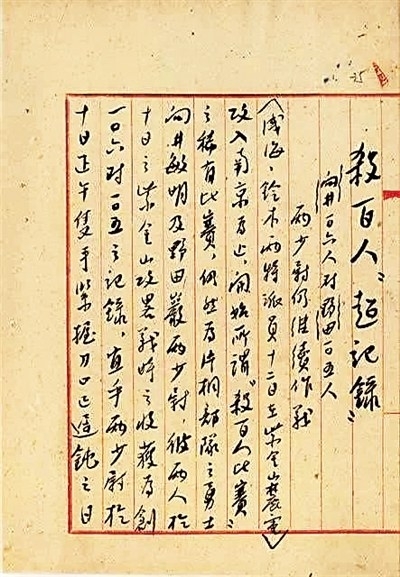 25
殺百人〝超記錄〞
向井一〇六人对野田一〇五人
兩少尉仍继續作戰
〈浅海、鈴木兩特派員十二日在紫金山麓電〉
攻入南京为止,開始所謂〝殺百人比賽〞
之稀有比賽,仍然为片桐部隊之勇士
向井敏明及野田巖兩少尉,彼兩人於
十日之紫金山攻畧戰時之收獲为創
一〇六对一〇五之記録,兩少尉於
十日正午隻手紧握刀口已遲鈍之日